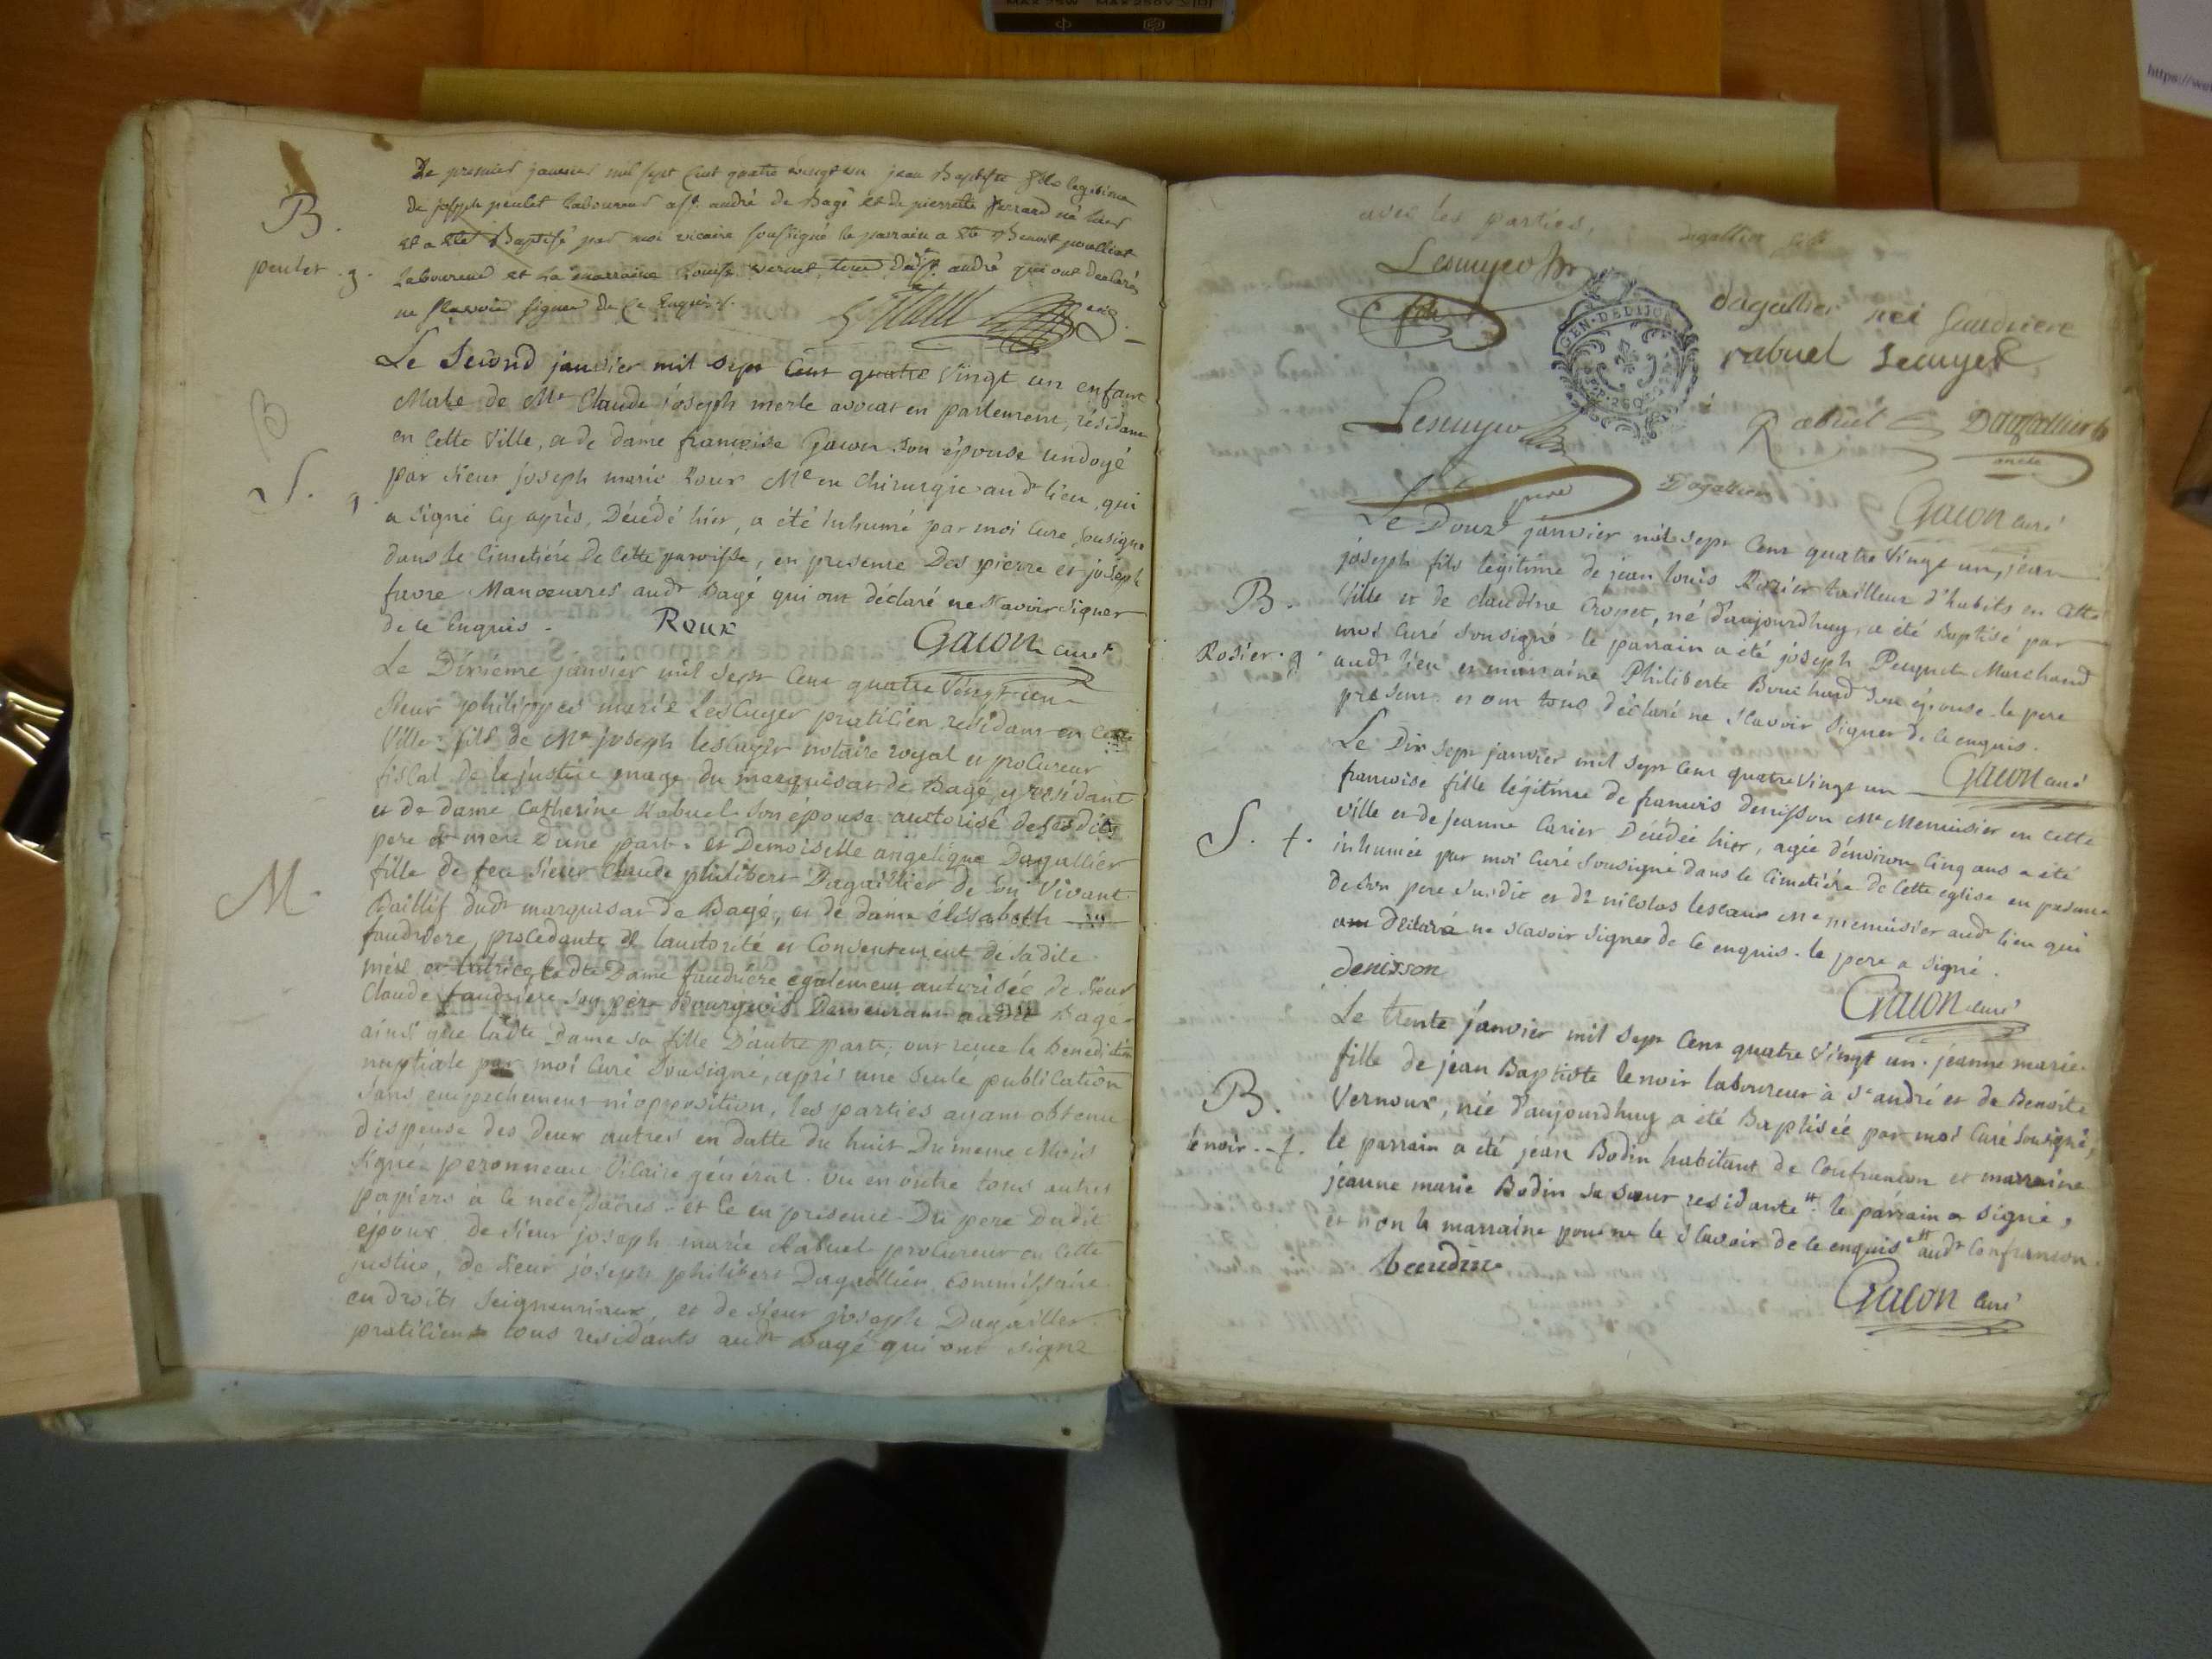 B.
peulet . g.
Le premier janvier mil sept Cent quatre vingt un jean Baptiste fils legitime
de joseph peulet Laboureur a st. andré de Bagé et de pierrette né hier
et a été Baptisé par moi vicaire soussigné le parrain a été Benoit
Laboureur et La marraine Louise st. andré qui ont declarés
ne sçavoir signer de ce Enquis.
B
S. g
Le Second janvier mil sept Cent quatre vingt un enfant
Male de Me Claude joseph merle avocat en parlement, résidant
en Cette Ville, et de dame françoise Gacon son épouse undoyé
par sieur joseph marie Roux Me en Chirurgie audt lieu, qui
a signé Cy après, Décédé hier, a été inhumé par moi Curé sousigné
dans le Cimetiére de Cette paroisse, en presence Des pierre et joseph
favre Manoeuvres audt Bagé qui ont déclaré ne sçavoir signer
de ce Enquis.
Roux
Gacon curé
M.
Le Dixième janvier mil sept Cent quatre Vingt un
sieur philippes marie Lescuyer praticien residant en Cette
Ville fils de Me joseph lescuyer notaire royal et procureur
fiscal de la justice mage du marquisat de Bagé y résidant
et de dame Catherine Rabuel son épouse autorisé de sesdits
pere et mere d'une part. et Demoiselle angelique Dagallier
fille de feu sieur Claude philibert Dagallier de son Vivant
Baillif dudt marquisat de Bagé, et de dame élisabeth
faudriere, procedante de lautorité et Consentement de sadite
mére et tutrice ladte Dame faudriére également autorisée de sieur
Claude faudriére son père Bourgeois Demeurant audit Bagé
ainsi que ladte Dame sa fille D'autre part; ont reçue la Benediction
nuptiale par moi Curé Sousigné, après une seule publication
sans empechement ni opposition, les parties ayant obtenu
dispense des deux autres en datte du huit Du meme Mois
signé peronneau Vicaire général. Vu en outre tous autres
papiers à ce nécessaires. et Ce en présence Du pere Dudit
époux, de sieur joseph marie Rabuel procureur en Cette
justice, de sieur joseph philibert Dagallier Commissaire
en droits seigneuriaux, et de sieur joseph Dagallier
praticiens tous residants audt Bagé qui ont signé
avec les parties.
dagallier
Lescuyer
GEN. DE DIJON
dagallier nei faudriere
rabuel Lecuyer
Lescuyer
Rabuel
Dagallier
Dagallier
Gacon curé
B.
Rosier. g.
Le Douze janvier mil sept Cent quatre Vingt un, jean
joseph fils légitime de jean louis Rozier tailleur d'habits en Cette
Ville et de claudine Cropet, né d'aujourdhuy, a été Baptisé par
moi Curé Sousigné le parrain a été joseph Peuget Marchand
audt lieu et marraine Philiberte Bouchard son épouse. le pere
présent. et ont tous déclaré ne sçavoir signer de Ce enquis.
Gacon curé
S. f.
Le Dix sept janvier mil sept Cent quatre Vingt un
francoise fille légitime de francois denisson Me Menuisier en Cette
Ville et de jeanne Carier Décédée hier, agée d'environ Cinq ans a été
inhumée par moi Curé Sousigné dans le Cimetiére de Cette eglise en presence
de son pere susdit et de nicolas lescaux Me menuisier audt lieu qui
a déclaré ne sçavoir signer de Ce enquis. le pere a signé.
denisson
Gacon curé
B.
lenoir. f.
Le trente janvier mil sept Cent quatre Vingt un. jeanne marie
fille de jean Baptiste lenoir laboureur à St andré et de Benoite
Vernoux, née d'aujourdhuy a été Baptisée par moi Curé Sousigné,
le parrain a été jean Bodin habitant de Confrancon et marraine
jeanne marie Bodin sa sœur residante # le parrain a signé,
et non la marraine pour ne le sçavoir de Ce enquis. # audt Confrancon.
beaudin
Gacon Curé